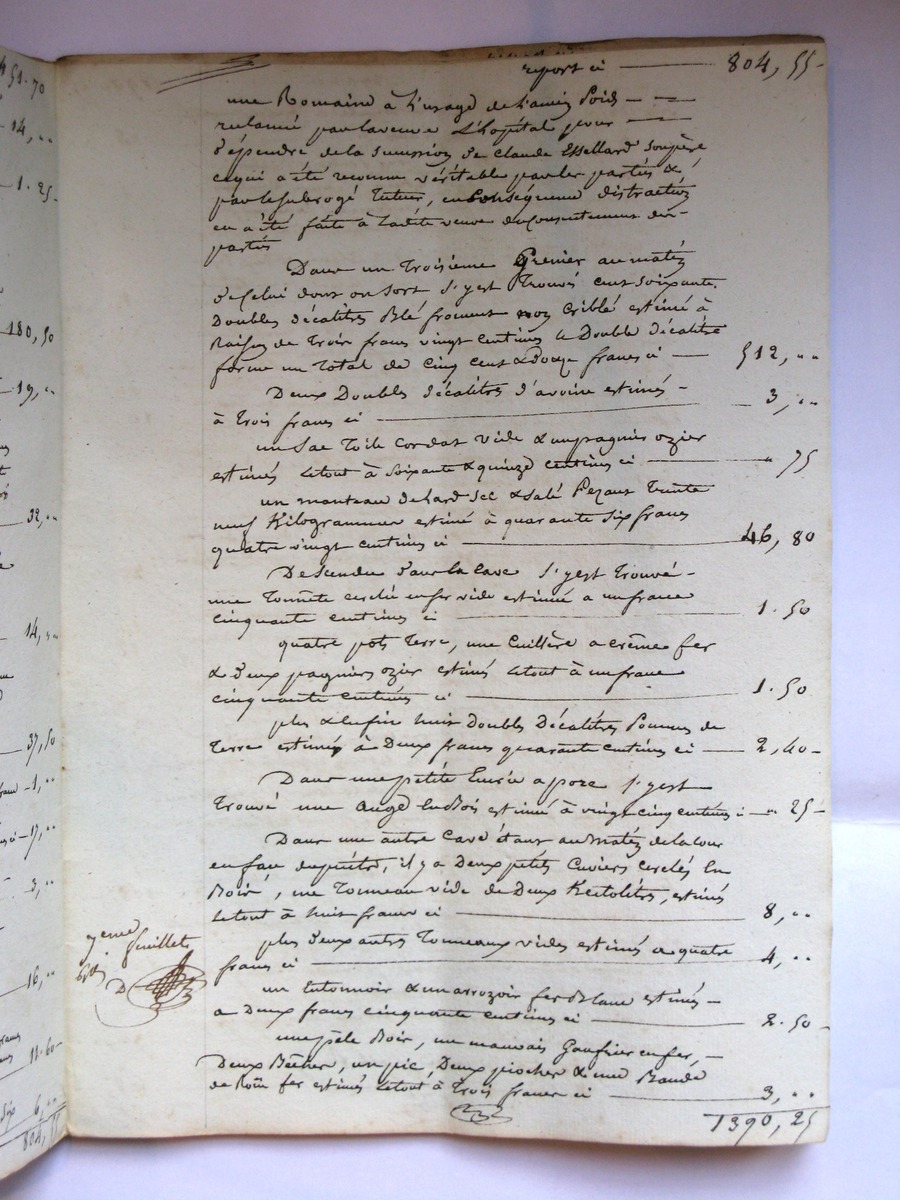 report ci 804, 55
une Romaine à l'usage de l'ancien Poids
réclamé par la veuve & l'hopital pour
dépendre de la succession de Claude Essellard Son père
ce qui a été reconnu véritable par les partiés &
par le subrogé Tuteur, en conséquence distraction
en a été faite à ladite veuve du consentement des
partiés
Dans un Troisieme Grenier au matin
de celui dont on sort s'y est Trouvés cent soixante
Doubles décalitres Blé froment non criblé estimé à
Raison de Trois francs vingt centimes le Double décalitre
forme un Total de cinq cent & douze francs ci 512, ..
Deux Doubles décalitres d'avoine estimés
à Trois francs ci 3, ..
un Sac Toile Cordat vide & un pagnier ozier
estimés le tout à soixante & quinze centimes ci " 75
un manteau de lard sec & salé Pezant Trente
neuf Kilogrammes estimé à quarante Six francs
quatre vingt centimes ci 46, 80
Descendu dans la Cave s'y est Trouvé
une Tonnete cerclé en fer vide estimée a un franc
cinquante centimes ci 1. 50
quatre pots Terre, une Cuillère a crême fer
& deux pagniers ozier estimés le tout à un franc
cinquante centimes ci 1. 50
plus & enfin huit Doubles Décalitres Pommes de
Terre estimés à Deux francs quarante centimes ci 2, 40
Dans une petite Ecurie a porc s'y est
Trouvé une Auge en Bois estimée à vingt cinq centimes ci " 25
Dans une autre Cave étant au matin de la Cour
en face, il y a Deux petits Cuviers cerclés En
Bois, un Tonneau vide de Deux Hectolitres, estimés
le tout à huit francs ci 8, ..
plus deux autres Tonneaux vides estimés a quatre
francs ci 4, ..
un Entonnoir & un arrozoir fer Blanc estimés
a Deux francs cinquante centimes ci 2. 50
une pèle Bois, un mauvais Gaufrier en fer,
Deux Bêches, un pic, Deux pioches & une Bande
de Roüe fer estimés le tout à Trois francs ci 3, ..
1390, 25
7eme feuillet
D
51. 70
14, ..
1. 25
180, 50
19, ..
32, ..
14, ..
37, 50
1, ..
17, ..
3, ..
16, ..
11. 60
6, ..
804, 55